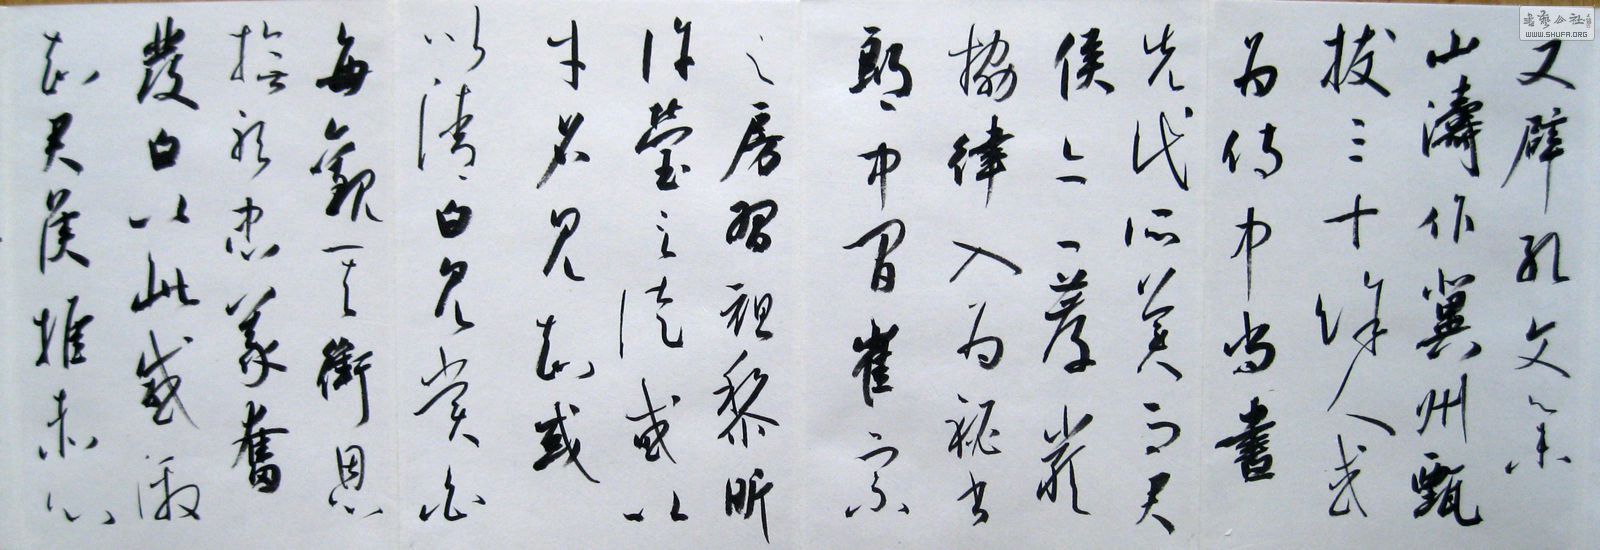 又辟孔文举
山濤作冀州甄
拔三十餘人或
为侍中尚書
先代所美而君
侯亦一薦嚴
協律入为秘书
郎中間崔宗
之房習祖黎昕
許瑩之徒或以
才名見知或
以清白見賞白
每觀其銜恩
撫躬忠義奮
發白以此感激
知君侯推赤心
書藝公社
WWW.SHUFA.ORG